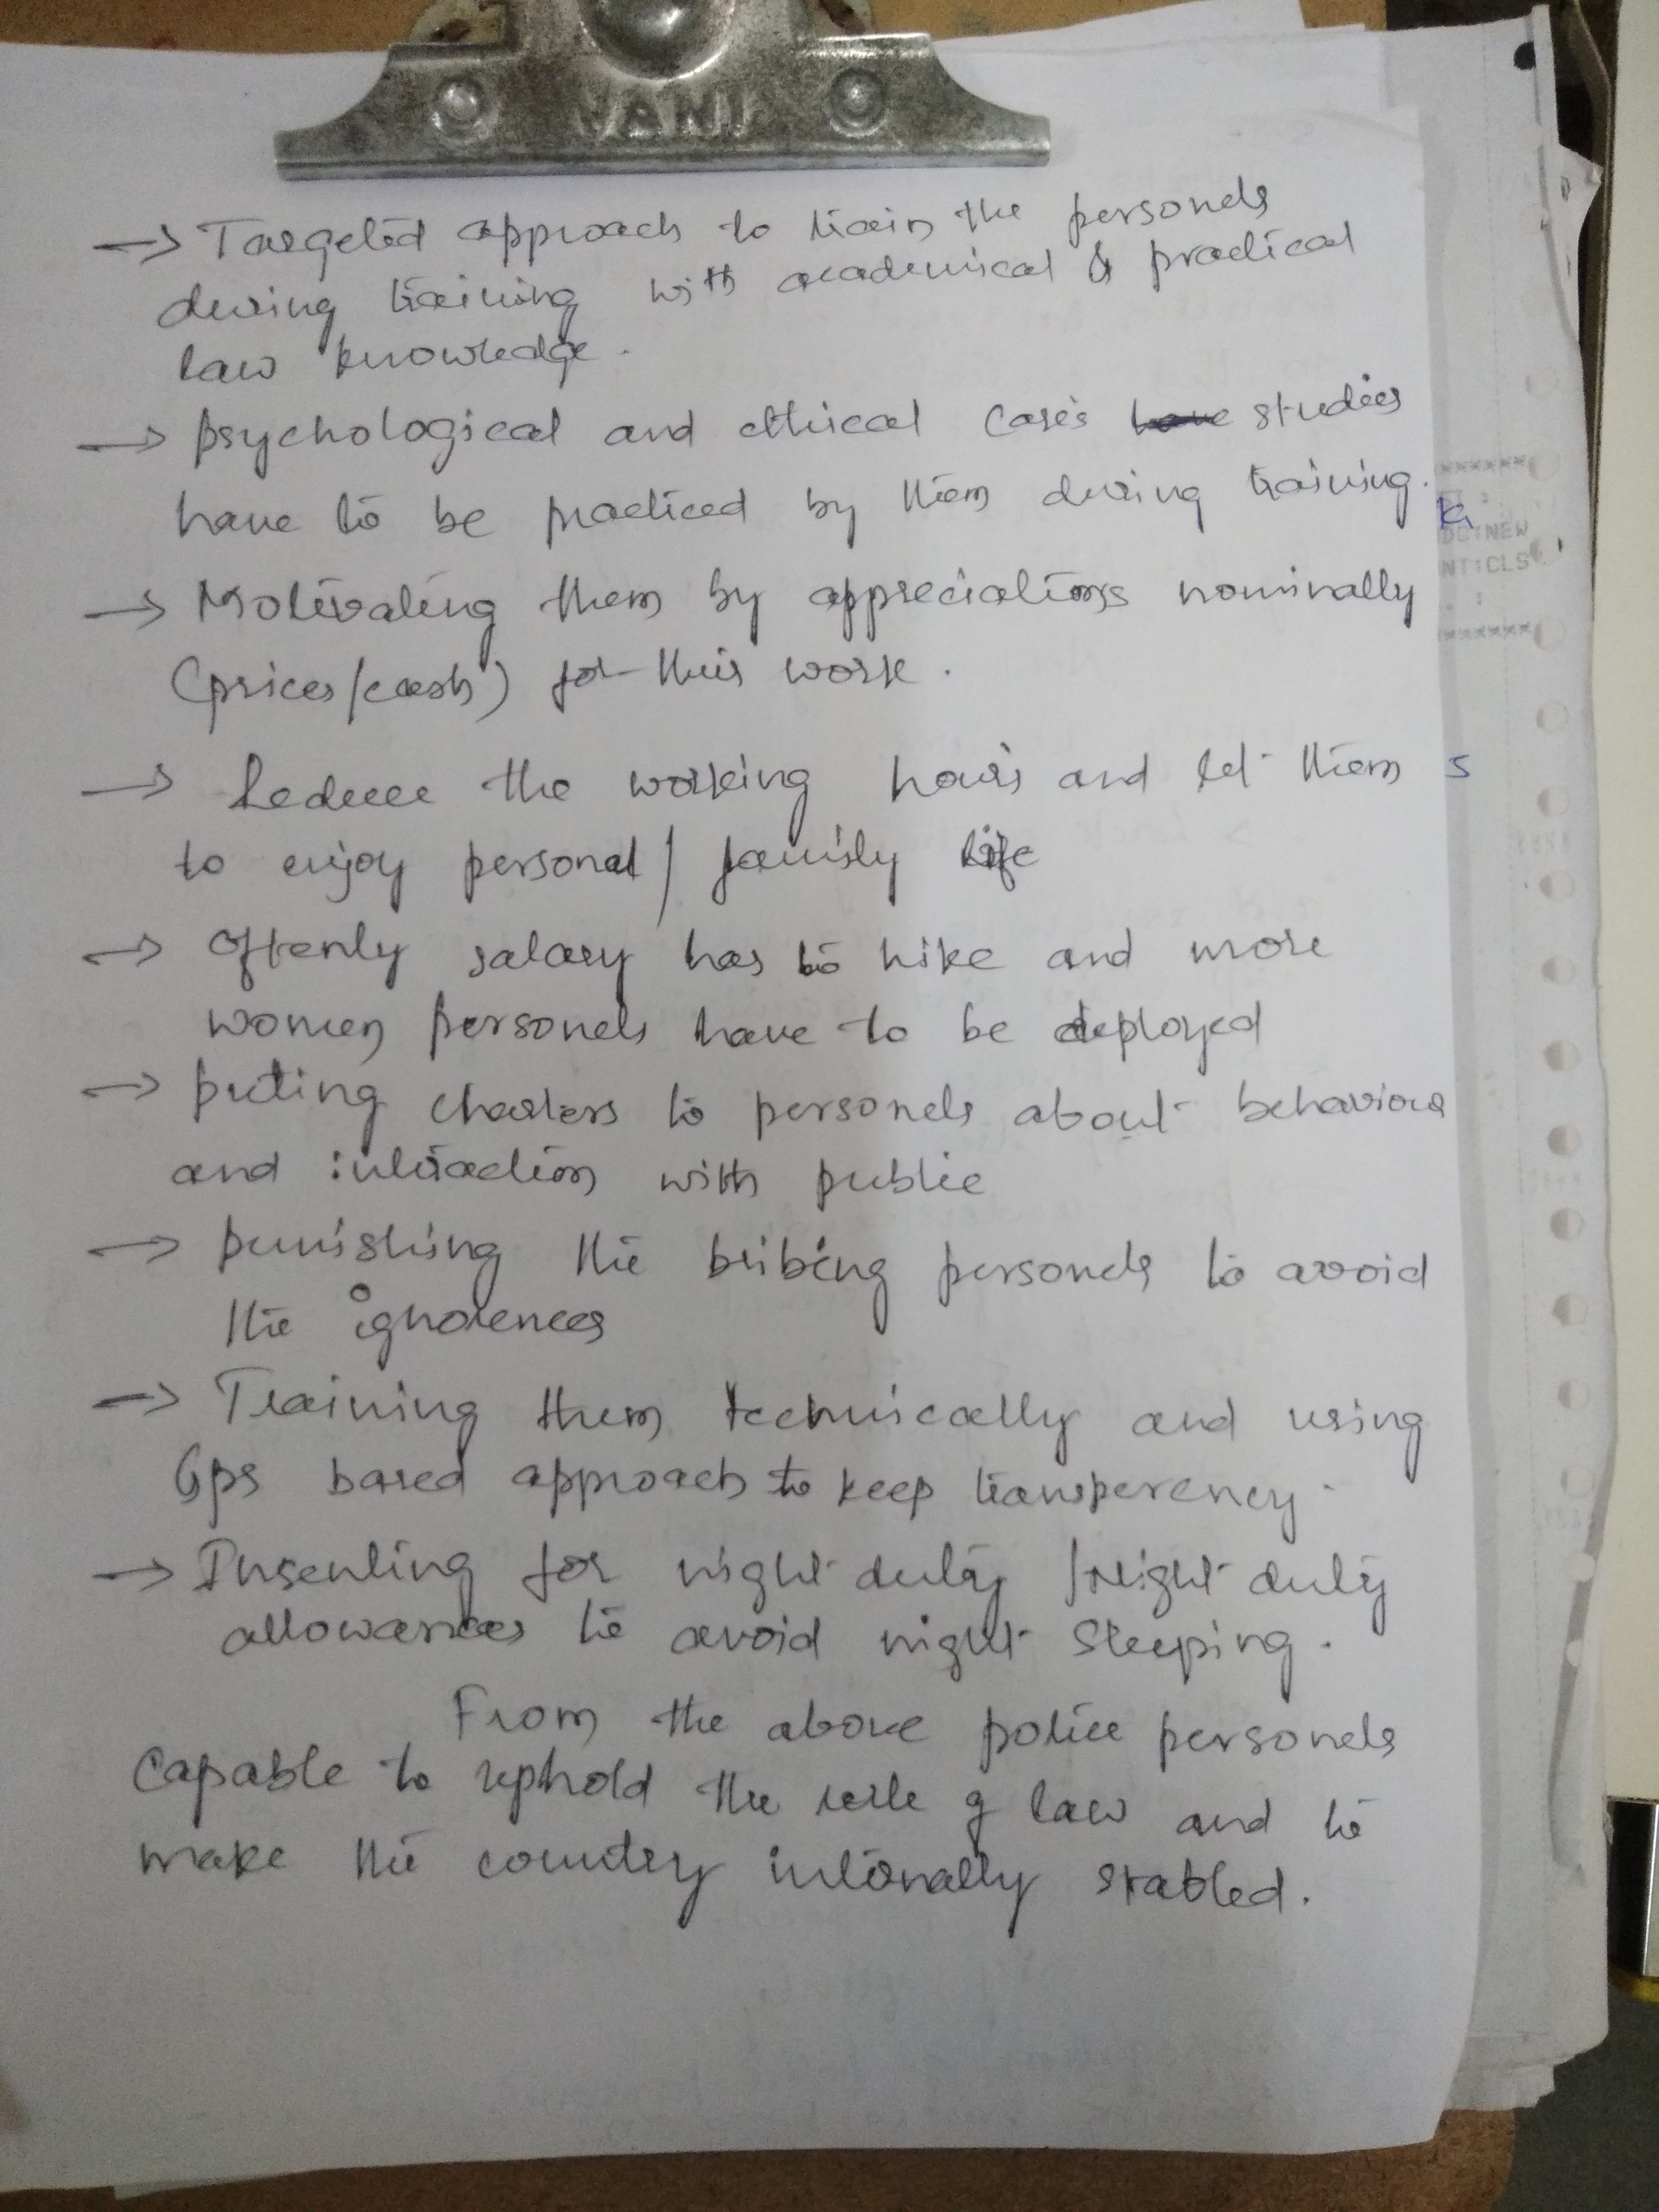 VANI
→ Targeted approach to train the personels
during training with academical & practical
law knowledge.
→ psychological and ethical cases have studies
have to be practiced by them during training.
→ Motivating them by appreciations nominally
(prices/cash) for their work.
→ Reduce the working hours and let them
to enjoy personal / family life
→ Offenly salary has to hike and more
women personels have to be deployed
→ puting charters to personels about behaviour
and intraction with public
→ punishing the bribing personels to avoid
the ignorences
→ Training them technically and using
Gps based approach to keep transperency.
→ Insenting for night duty / Night duty
allowances to avoid night sleeping.
From the above police personels
Capable to uphold the rule of law and to
make the country intonally stabled.
DC:NEW
NT:CLS